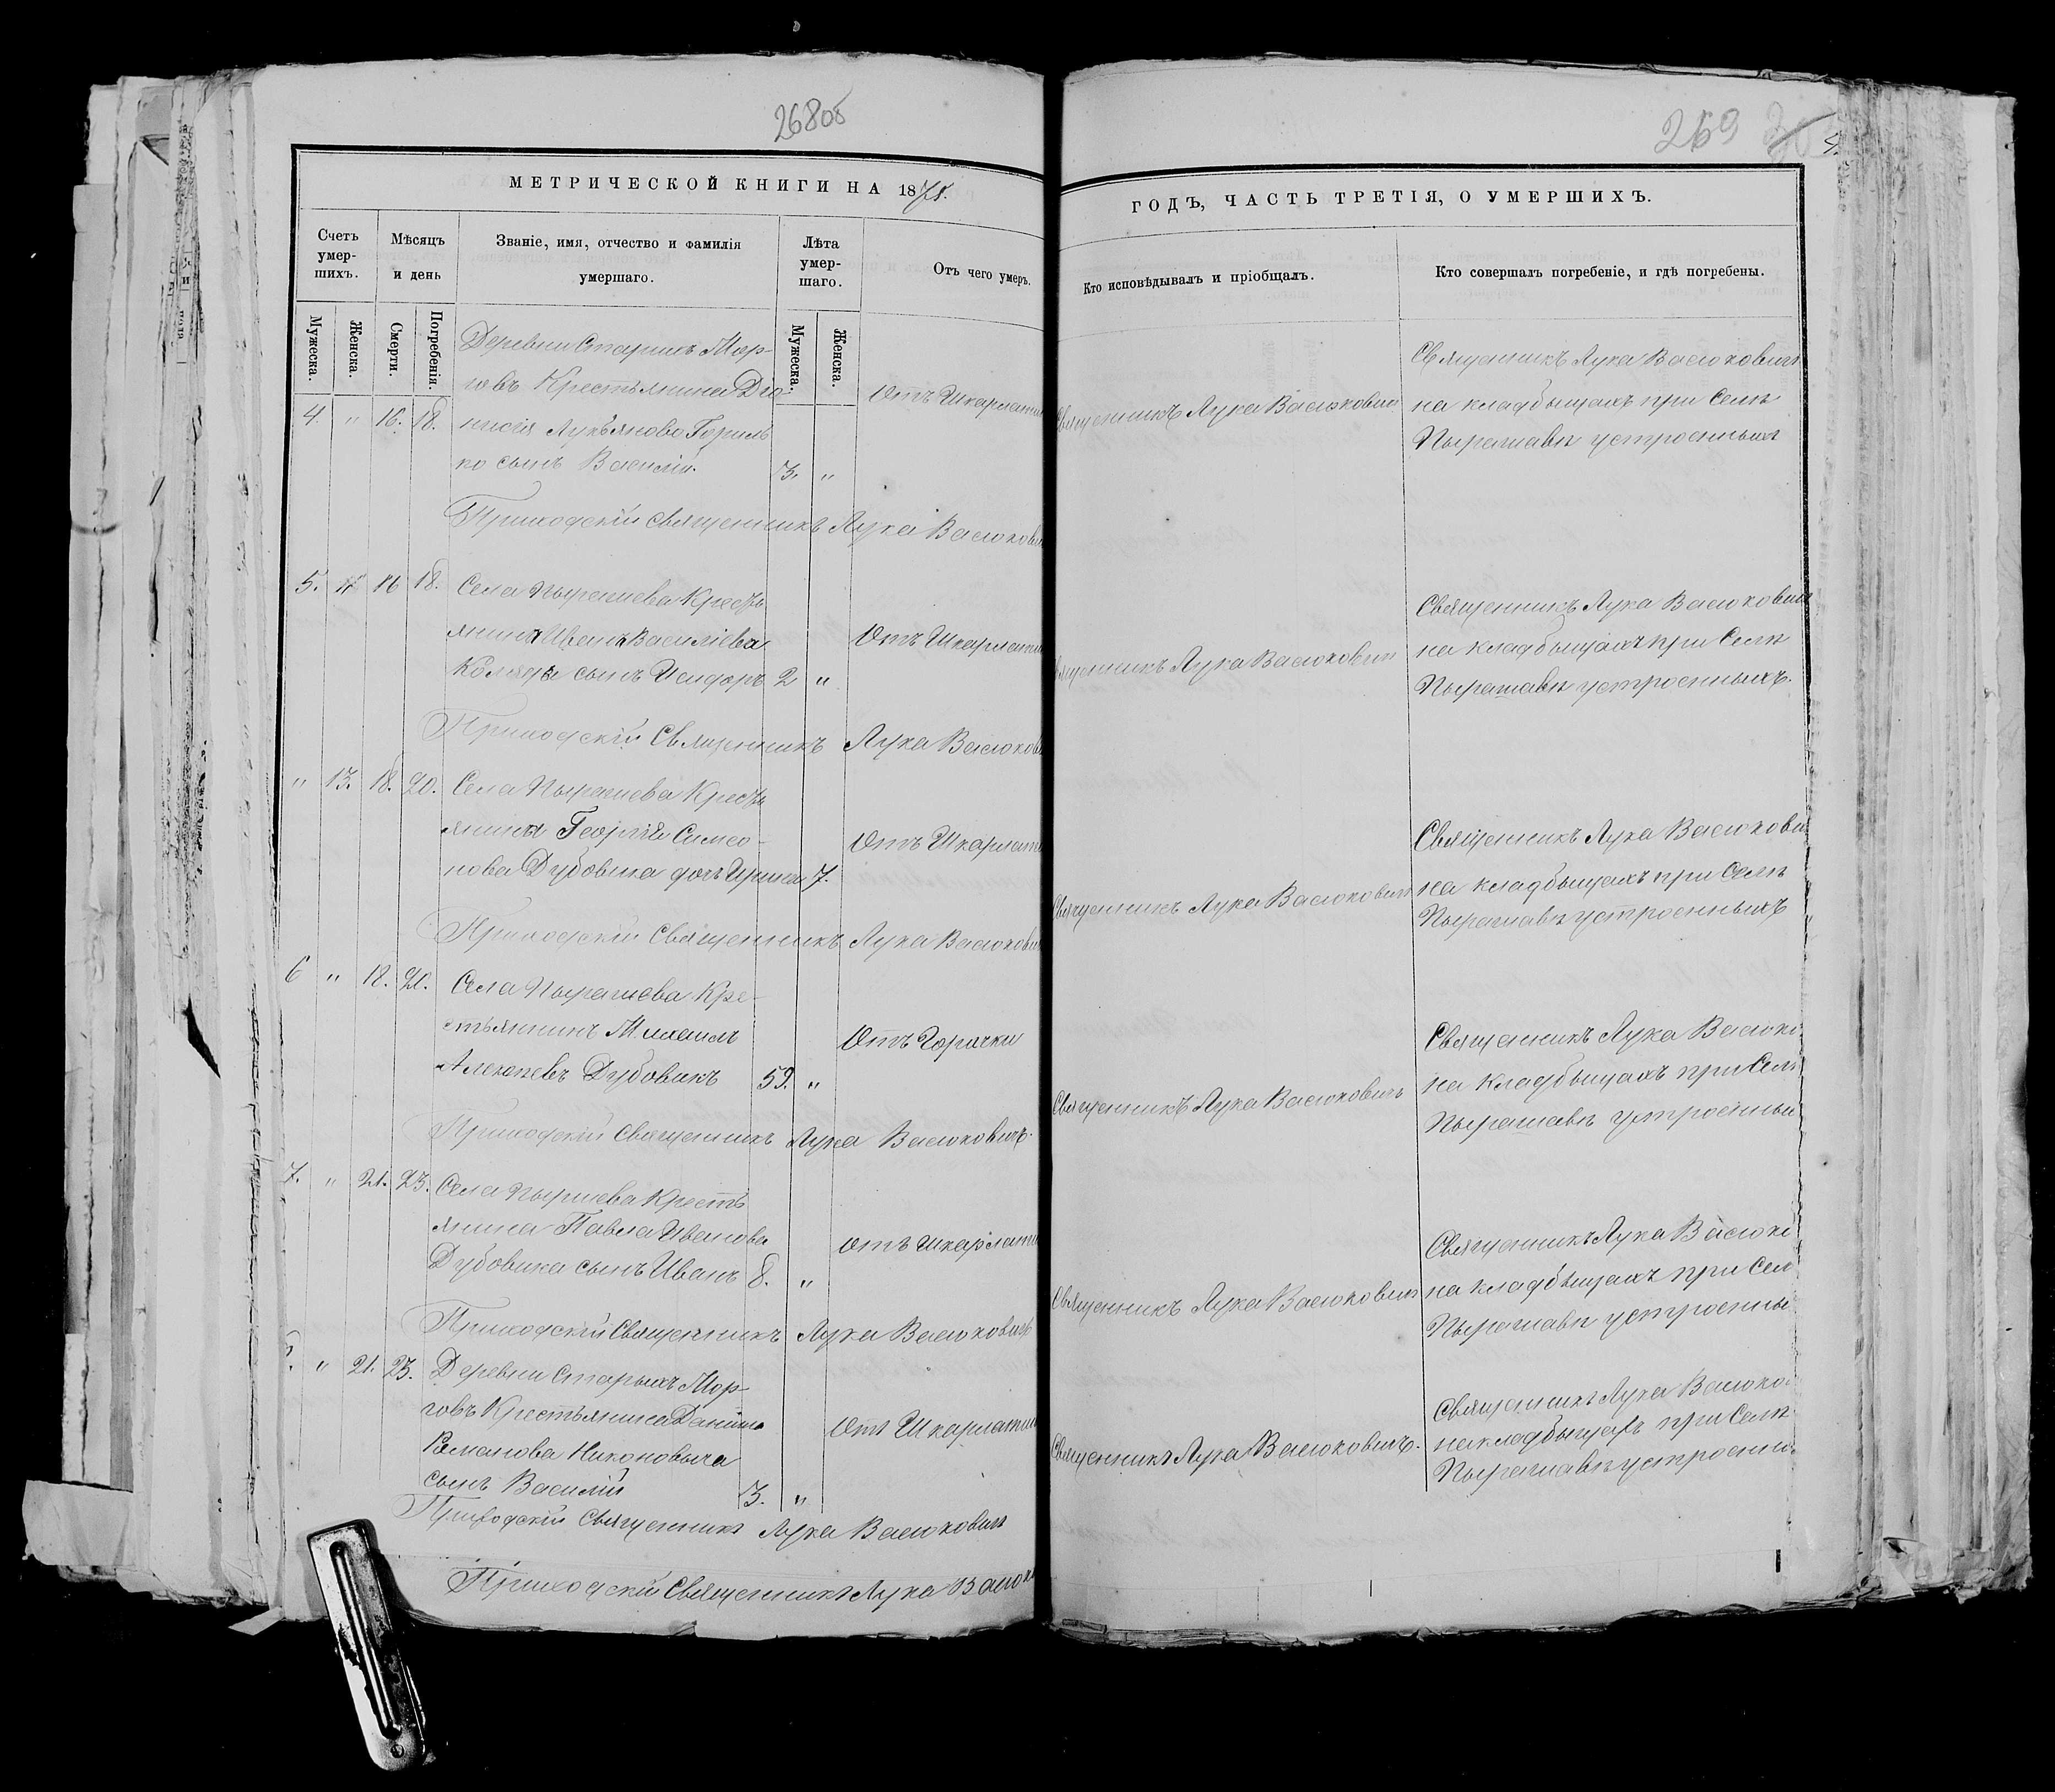 268об
269
МЕТРИЧЕСКОЙ КНИГИ НА 1875.
ГОДЪ, ЧАСТЬ ТРЕТІЯ, О УМЕРШИХЪ.
Счетъ умершихъ.
Мѣсяцъ и день
Званіе, имя, отчество и фамилія умершаго.
Лѣта умершаго.
Отъ чего умеръ.
Кто исповѣдывалъ и пріобщалъ.
Кто совершалъ погребеніе, и гдѣ погребены.
Мужеска.
Женска.
Смерти.
Погребенія.
Мужеска.
Женска.
4. " 16. 18.
Деревни Старыхъ Мор-
говъ Крестьянина Діо-
нисія Лукьянова Гориль
ко сынъ Василій. 3. "
Отъ Шкарлати
Священникъ Лука Васюкович
Священникъ Лука Васюкович
на кладбищахъ при Селѣ
Пырашавѣ устроенных
Приходскій священникъ Лука Васюкови
5. " 16 18.
Села Пырашева Кресть
янина Ивана Василіева
Коляды сынъ Исидоръ 2 "
Отъ Шкарлати
Священникъ Лука Васюкович
Священникъ Лука Васюкович
на кладбищахъ при Селѣ
Пырашавѣ устроенныхъ.
Приходскій Священникъ Лука Васюкови
" 13. 18. 20.
Села Пырашева Кресть
янина Георгія Симео-
нова Дубовика дочь Ирина 7.
Отъ Шкарлати
Священникъ Лука Васюкович
Священникъ Лука Васюкови
на кладбищахъ при Селѣ
Пырашавѣ устроенныхъ
Приходскій Священникъ Лука Васюкови
6 " 18. 20.
Села Пырашева Кре-
стьянинъ Михаилъ
Алексѣевъ Дубовикъ 59. "
Отъ Горячки
Священникъ Лука Васюковичъ
Священникъ Лука Васюко
на кладбищахъ при Сел
Пырашавѣ устроенны
Приходскій Священникъ Лука Васюковичъ.
7. " 21. 23.
Села Пыршева Кресть
янина Павла Иванова
Дубовика сынъ Иванъ 8. "
Отъ Шкарлати
Священникъ Лука Васюкович
Священникъ Лука Васюко
на кладбищахъ при Сел
Пырашавѣ устроенны
Приходскій Священникъ Лука Васюковичъ
" 21. 23.
Деревни Старыхъ Мор-
говъ Крестьянина Даніила
Романова Никоновича
сынъ Василій 3. "
Отъ Шкарлатин
Священникъ Лука Васюковичъ.
Священникъ Лука Васюко
на кладбищахъ при Селѣ
Пырашавѣ устроенн
Приходскій Священникъ Лука Васюкович
Приходскій Священникъ Лука Васюк